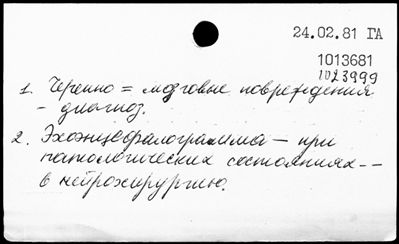 24.02.81 ГА
1013681
1023999
1. Черепно = мозговые повреждения
- диагноз.
2. Эхоэнцефалограмма - при
патологических состояниях --
в нейрохирургию.